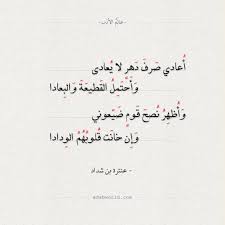 - عالم الأدب -
أُعادي صَرفَ دَهرٍ لا يُعادى
وَأَحتَمِلُ القَطيعَةَ وَالبِعادا
وَأُظهِرُ نُصحَ قَومٍ ضَيَّعوني
وَإِن خانَت قُلوبُهُمُ الوِدادا
- عنترة بن شداد -
adabworld.com